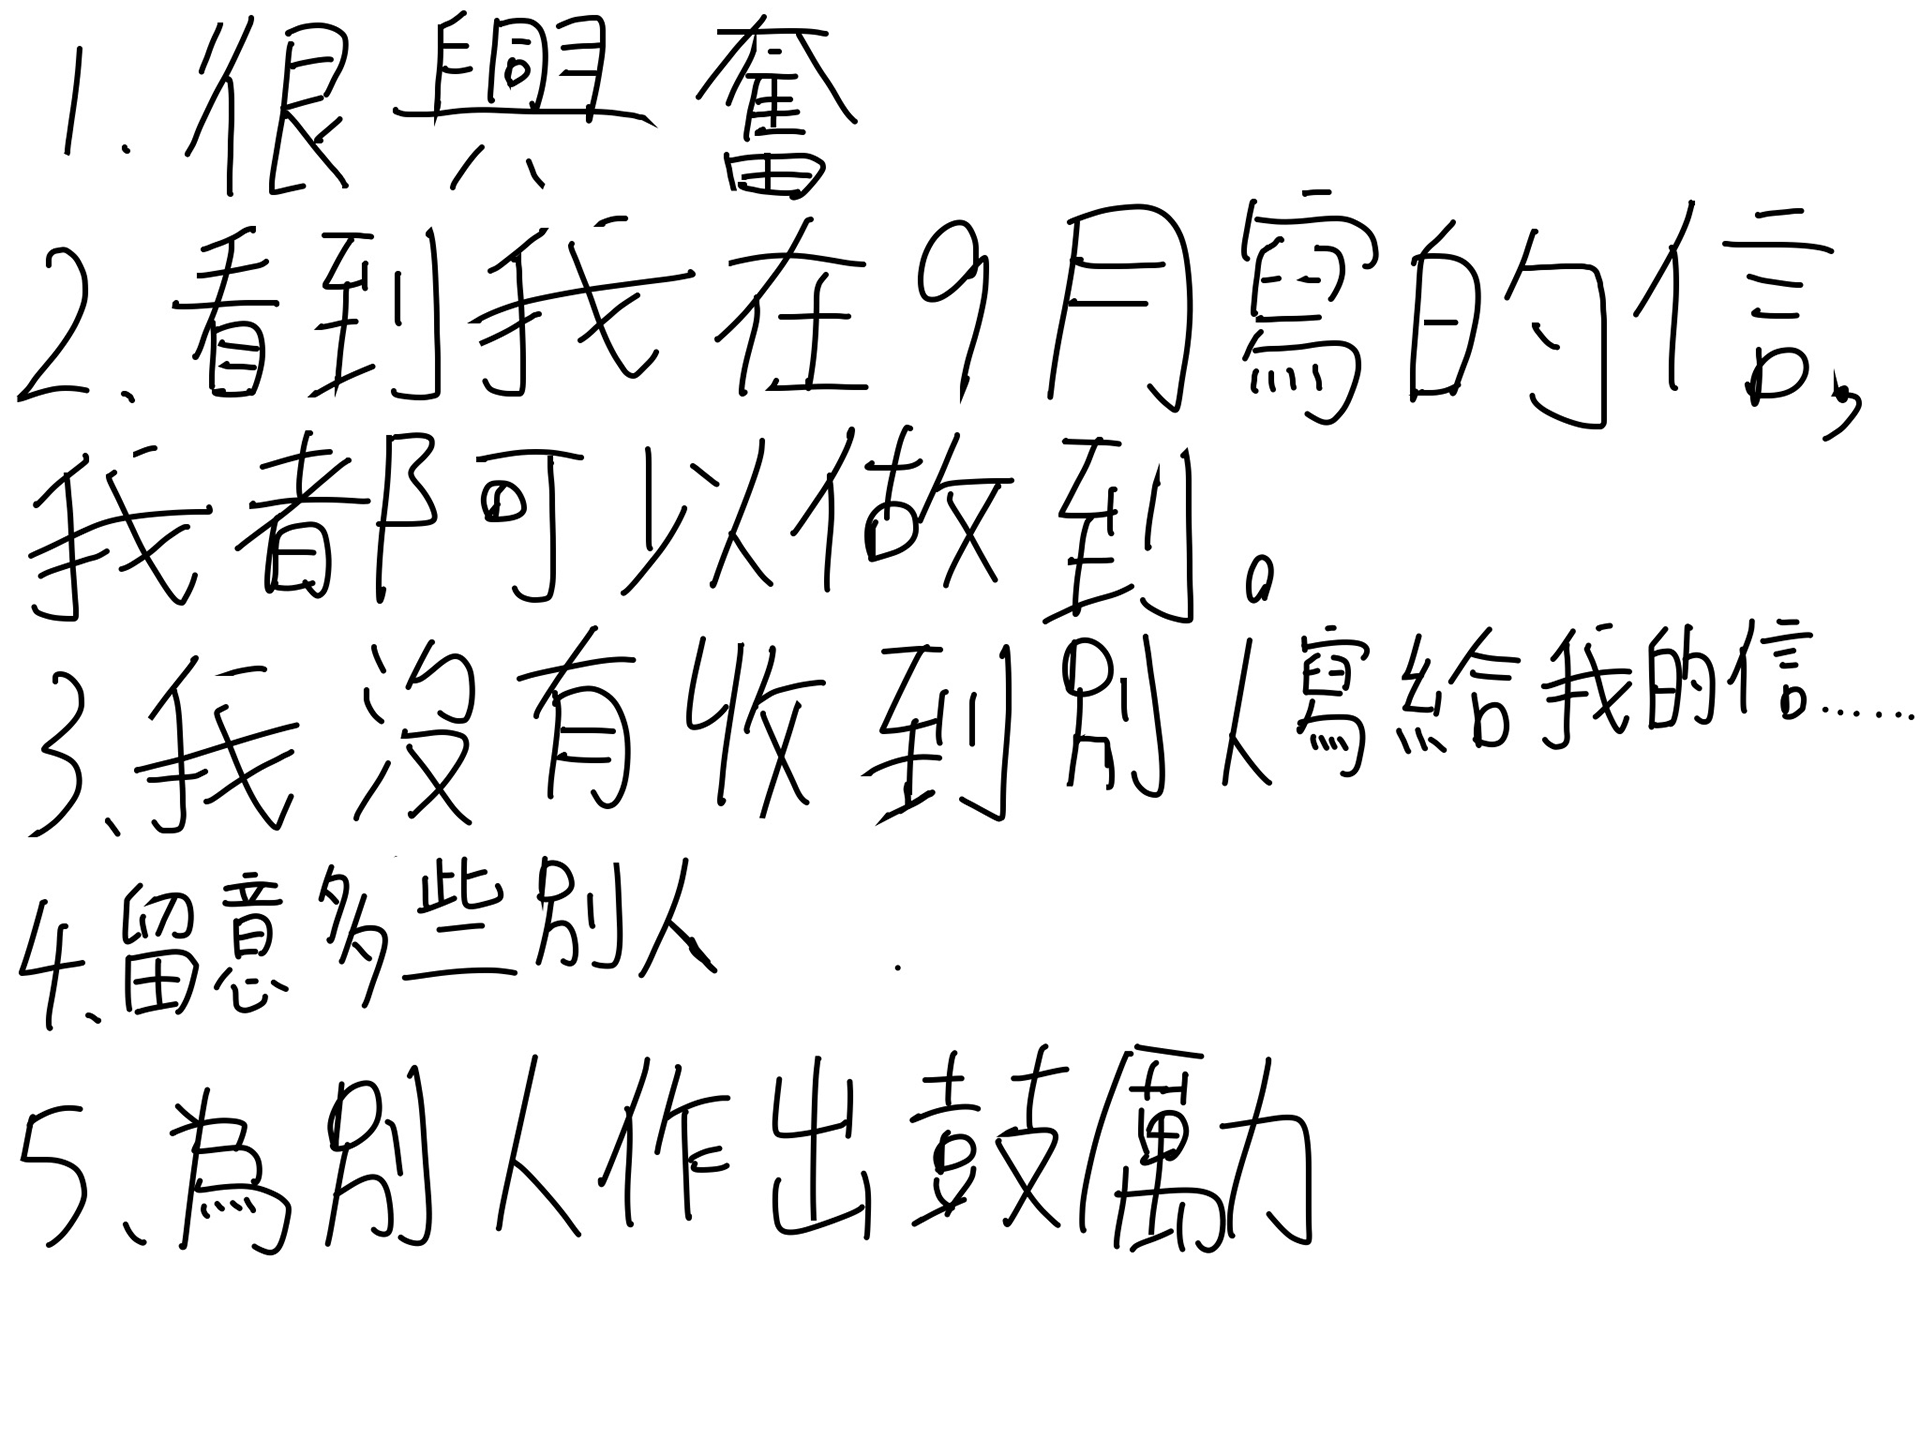 1. 很興奮
2、看到我在9月寫的信,
我都可以做到。
3、我沒有收到別人寫給我的信......
4、留意多些別人
5、為別人作出鼓厲力